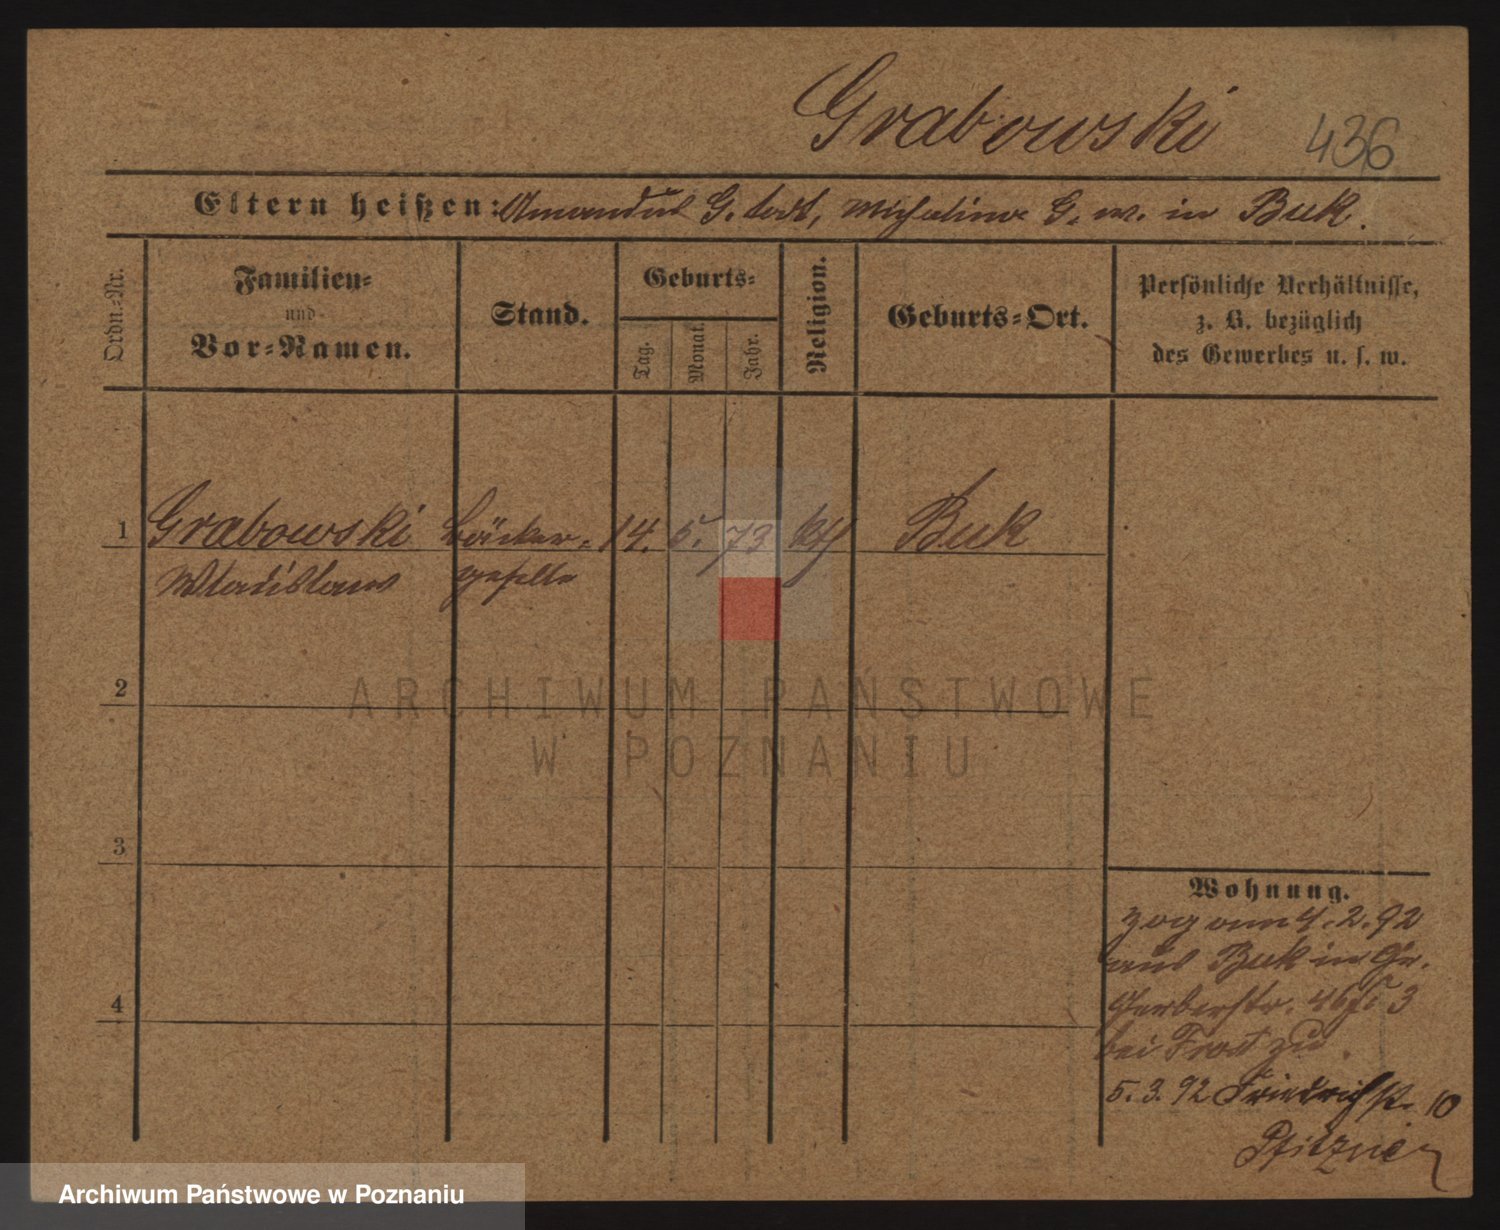 Grabowski 436
Eltern heißen: Amandus G. todt, Michalina G. w. in Buk.
Ordn.-Nr.
Familien-
und
Vor-Namen.
Stand.
Geburts-
Tag.
Monat.
Jahr.
Religion.
Geburts-Ort.
Persönliche Verhältnisse,
z. B. bezüglich
des Gewerbes u. s. w.
1 Grabowski Bäcker- 14. 5. 73 kth Buk
Wladislaus geselle
2
ARCHIWUM PAŃSTWOWE
W POZNANIU
3
Wohnung.
zog am 4. 2. 92
aus Buk in Gr.
Gerberstr. 3
4
bei Frost zu.
5. 3. 92 Friedrichstr. 10
Pfitzner
Archiwum Państwowe w Poznaniu